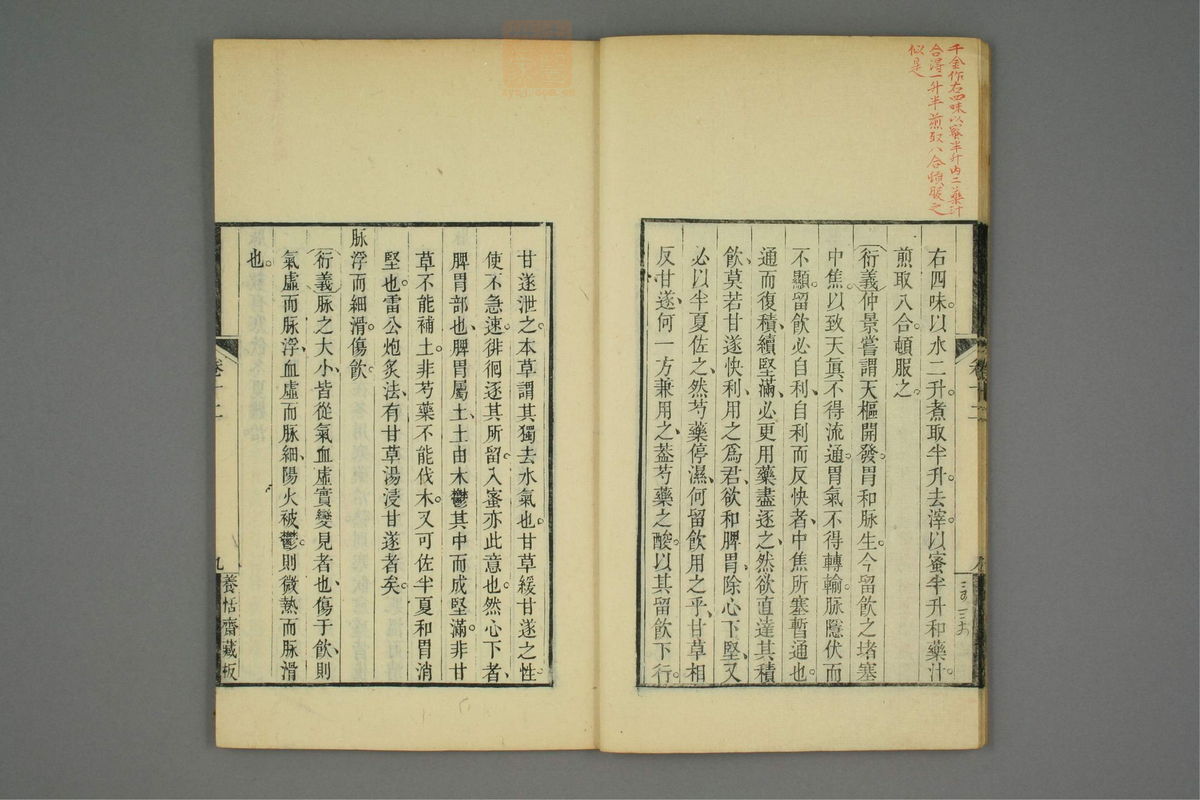 千金作右四味以蜜半升内二藥汁
合得一升半煎取八合頓服之
似是
右四味。以水二升。煮取半升。去滓。以蜜半升和藥汁。
煎取八合。頓服之。
衍義仲景嘗謂天樞開發。胃和脉生。今留飲之堵塞
中焦。以致天眞不得流通。胃氣不得轉輸。脉隱伏而
不顯。留飲必自利、自利而反快者、中焦所塞暫通也。
通而復積、續堅滿、必更用藥盡逐之、然欲直達其積
飲、莫若甘遂快利、用之爲君、欲和脾胃、除心下堅、又
必以半夏佐之、然芍藥停濕、何留飲用之乎、甘草相
反甘遂、何一方兼用之、葢芍藥之酸。以其留飲下行。
甘遂泄之。本草謂其獨去水氣也。甘草緩甘遂之性
使不急速。徘徊逐其所留。入蜜亦此意也。然心下者、
脾胃部也、脾胃屬土、土由木鬱其中而成堅滿。非甘
草不能補土。非芍藥不能伐木。又可佐半夏和胃消
堅也。雷公炮炙法、有甘草湯浸甘遂者矣。
脉浮而細滑。傷飲。
衍義脉之大小、皆從氣血虛實變見者也、傷于飲、則
氣虛而脉浮、血虛而脉細、陽火被鬱。則微熱而脉滑
也。
卷十二
九
養恬齋藏板